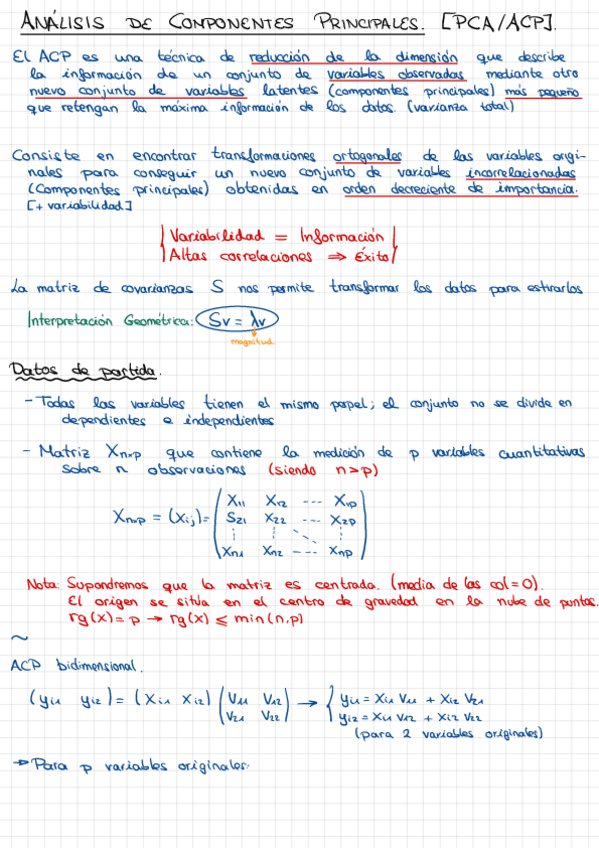 ANÁLISIS DE COMPONENTES PRINCIPALES. [PCA/ACP].
El ACP es una técnica de reducción de la dimensión que describe
la información de un conjunto de variables observadas mediante otro
nuevo conjunto de variables latentes (componentes principales) más pequeño
que retengan la máxima información de los datos. (varianza total)
Consiste en encontrar transformaciones ortogonales de las variables origi-
nales para conseguir un nuevo conjunto de variables incorrelacionadas
(Componentes principales) obtenidas en orden decreciente de importancia.
[+ variabilidad]
Variabilidad = Información
Altas correlaciones ⇒ Éxito
La matriz de covarianzas S nos permite transformar los datos para estirarlos
Interpretación Geométrica: Sv = λv
magnitud.
Datos de partida.
- Todas las variables tienen el mismo papel; el conjunto no se divide en
dependientes e independientes
- Matriz Xnxp que contiene la medición de p variables cuantitativas
sobre n observaciones (siendo n>p)
Xnxp = (Xij) = ( X11 X12 --- X1p
S21 X22 --- X2p
Xn1 Xn2 --- Xnp )
Nota: Supondremos que la matriz es centrada. (media de las col = 0).
El origen se sitúa en el centro de gravedad en la nube de puntos.
rg(x) = p → rg(x) ≤ min(n,p)
~
ACP bidimensional.
(yi1 yi2) = (Xi1 Xi2) ( V11 V12 → { yi1 = Xi1 V11 + Xi2 V21
V21 V22 ) yi2 = Xi1 V12 + Xi2 V22
(para 2 variables originales)
→ Para p variables originales: